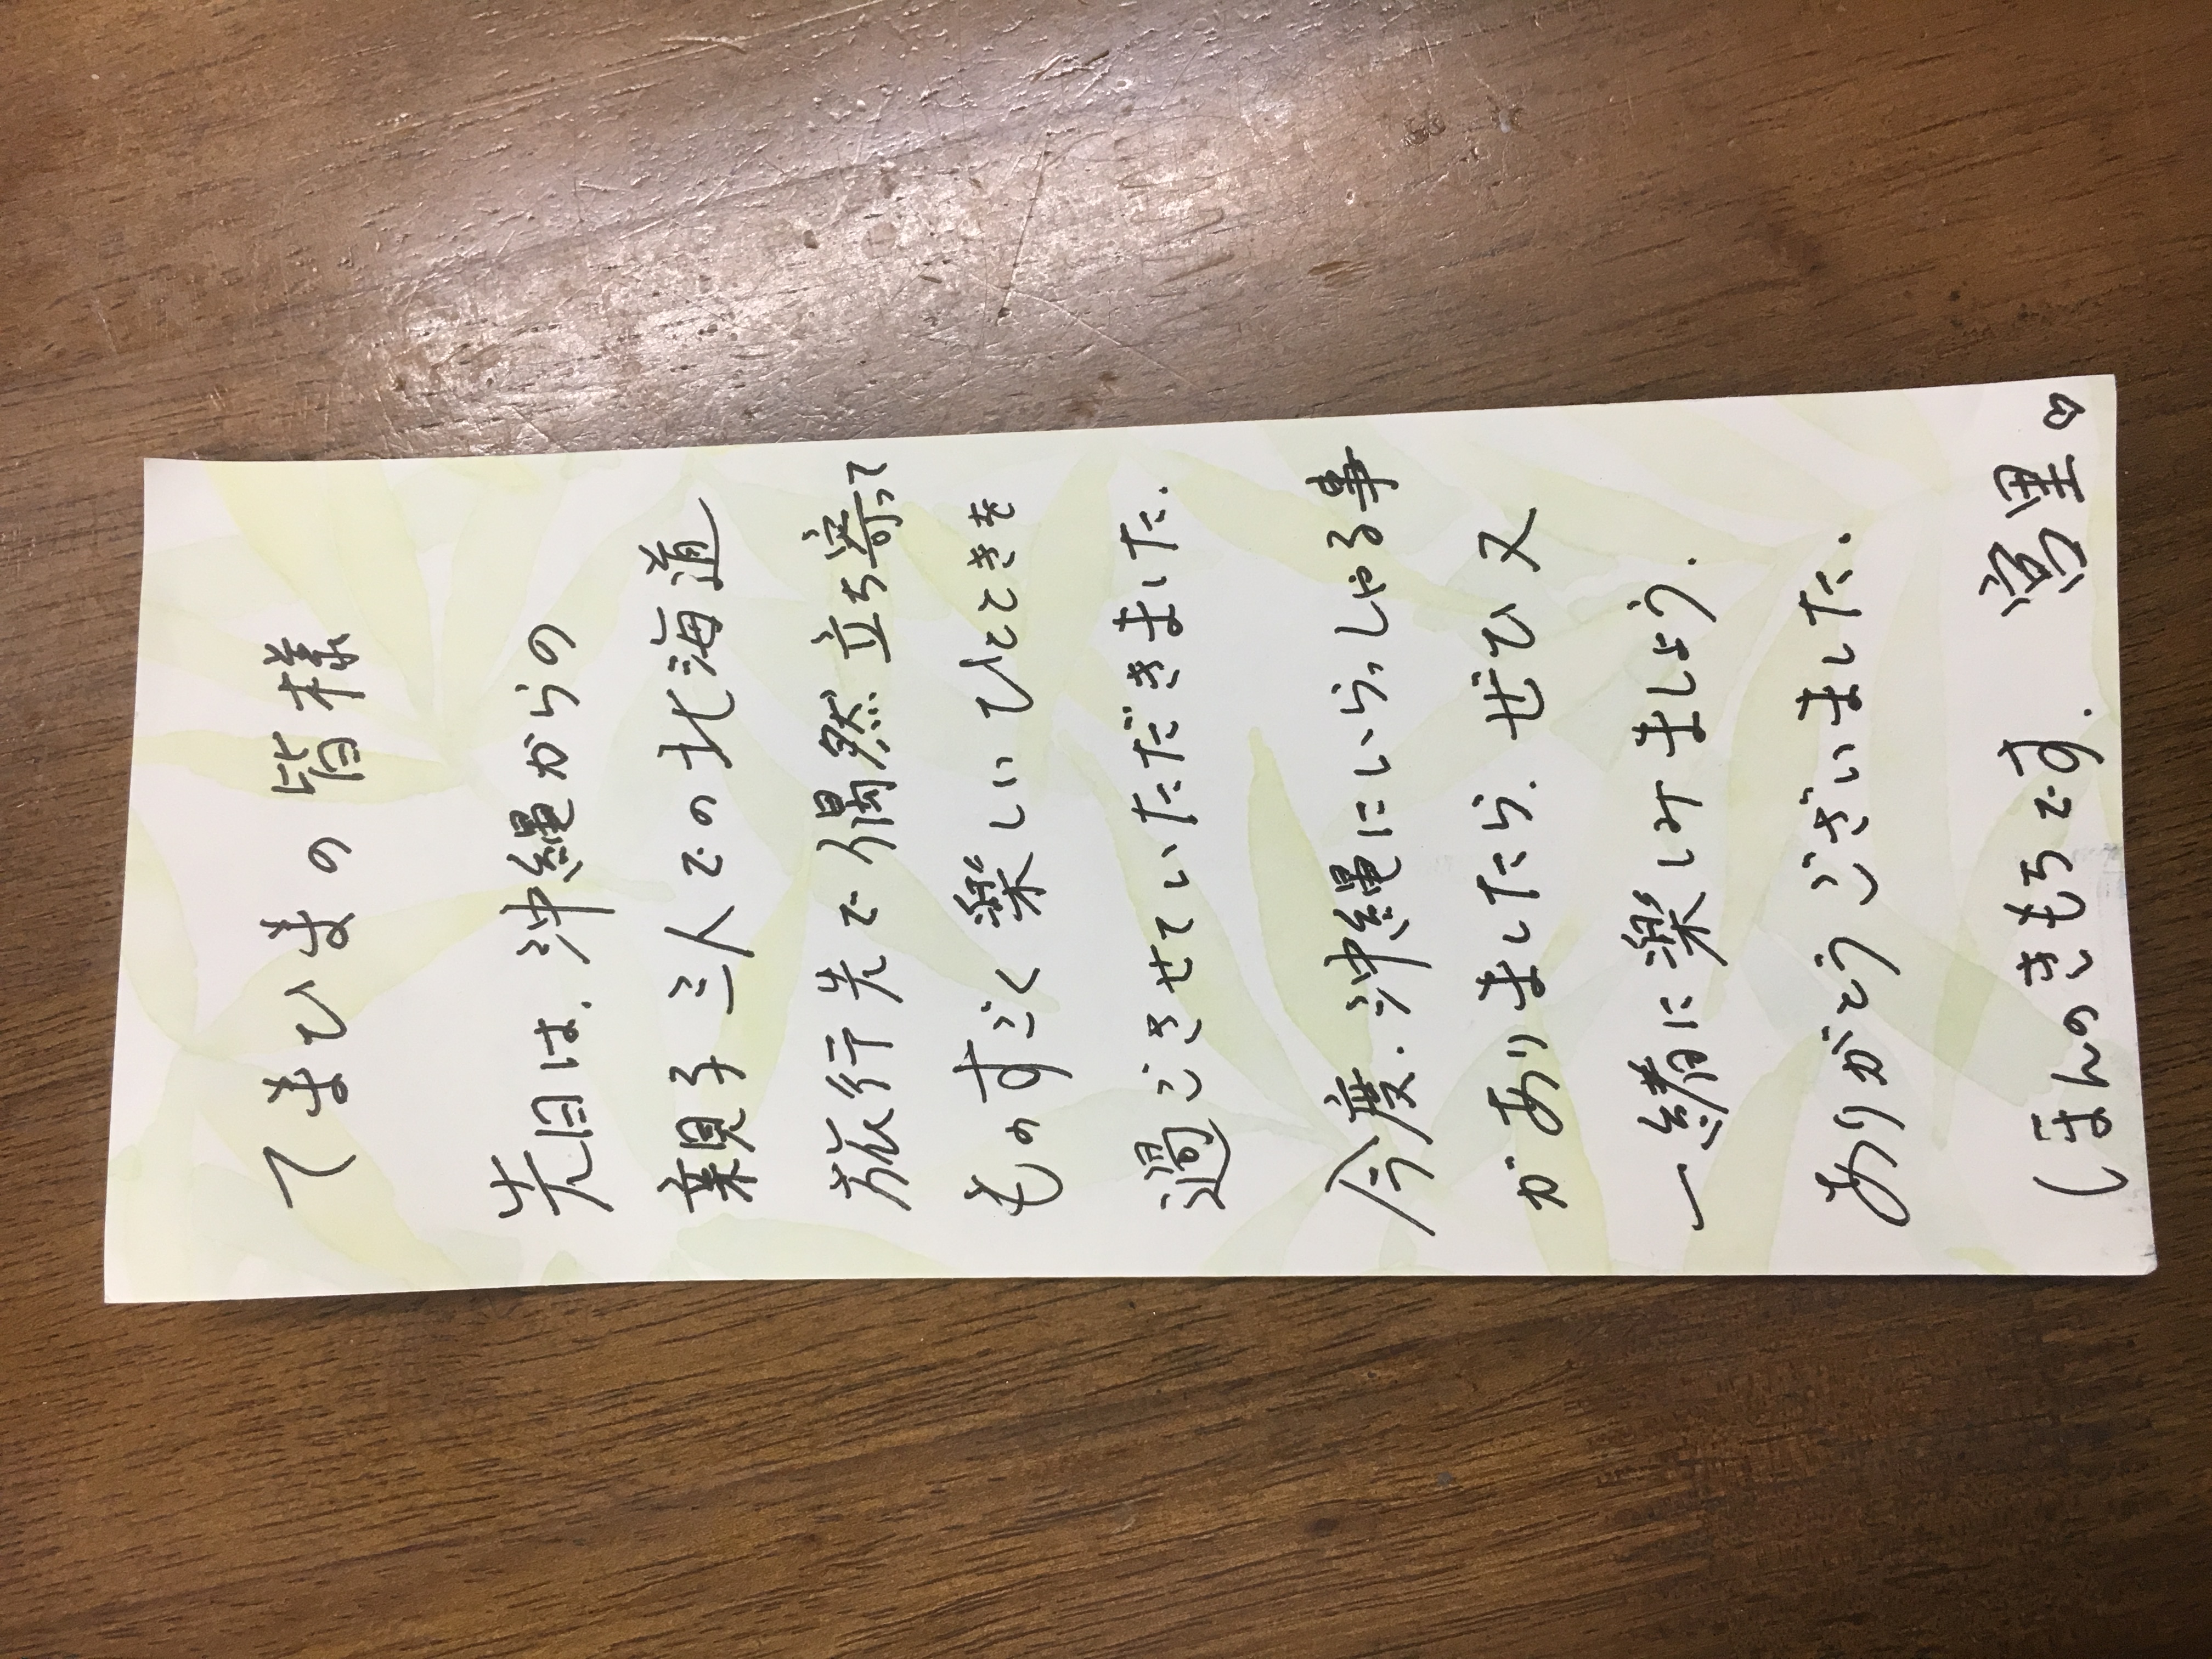 てまひまの皆様
先日は、沖縄からの
親子三人での北海道
旅行先で偶然立ち寄って
ものすごく楽しいひとときを
過ごさせていただきました.
今度.沖縄にいらっしゃる事
がありましたら、ぜひ又
一緒に楽しみましょう.
ありがとうございました.
(ほんのきもちです. 里♡